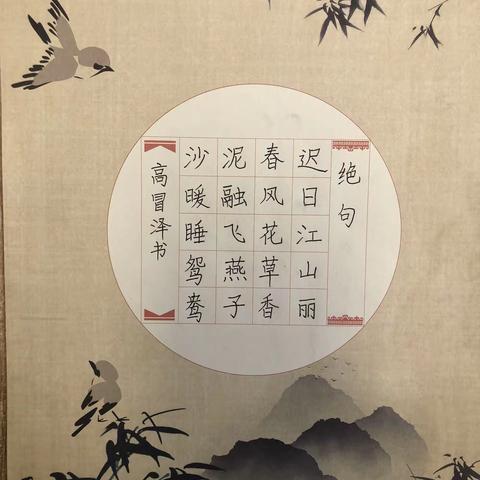 绝句
迟日江山丽
春风花草香
泥融飞燕子
沙暖睡鸳鸯
高冒泽书